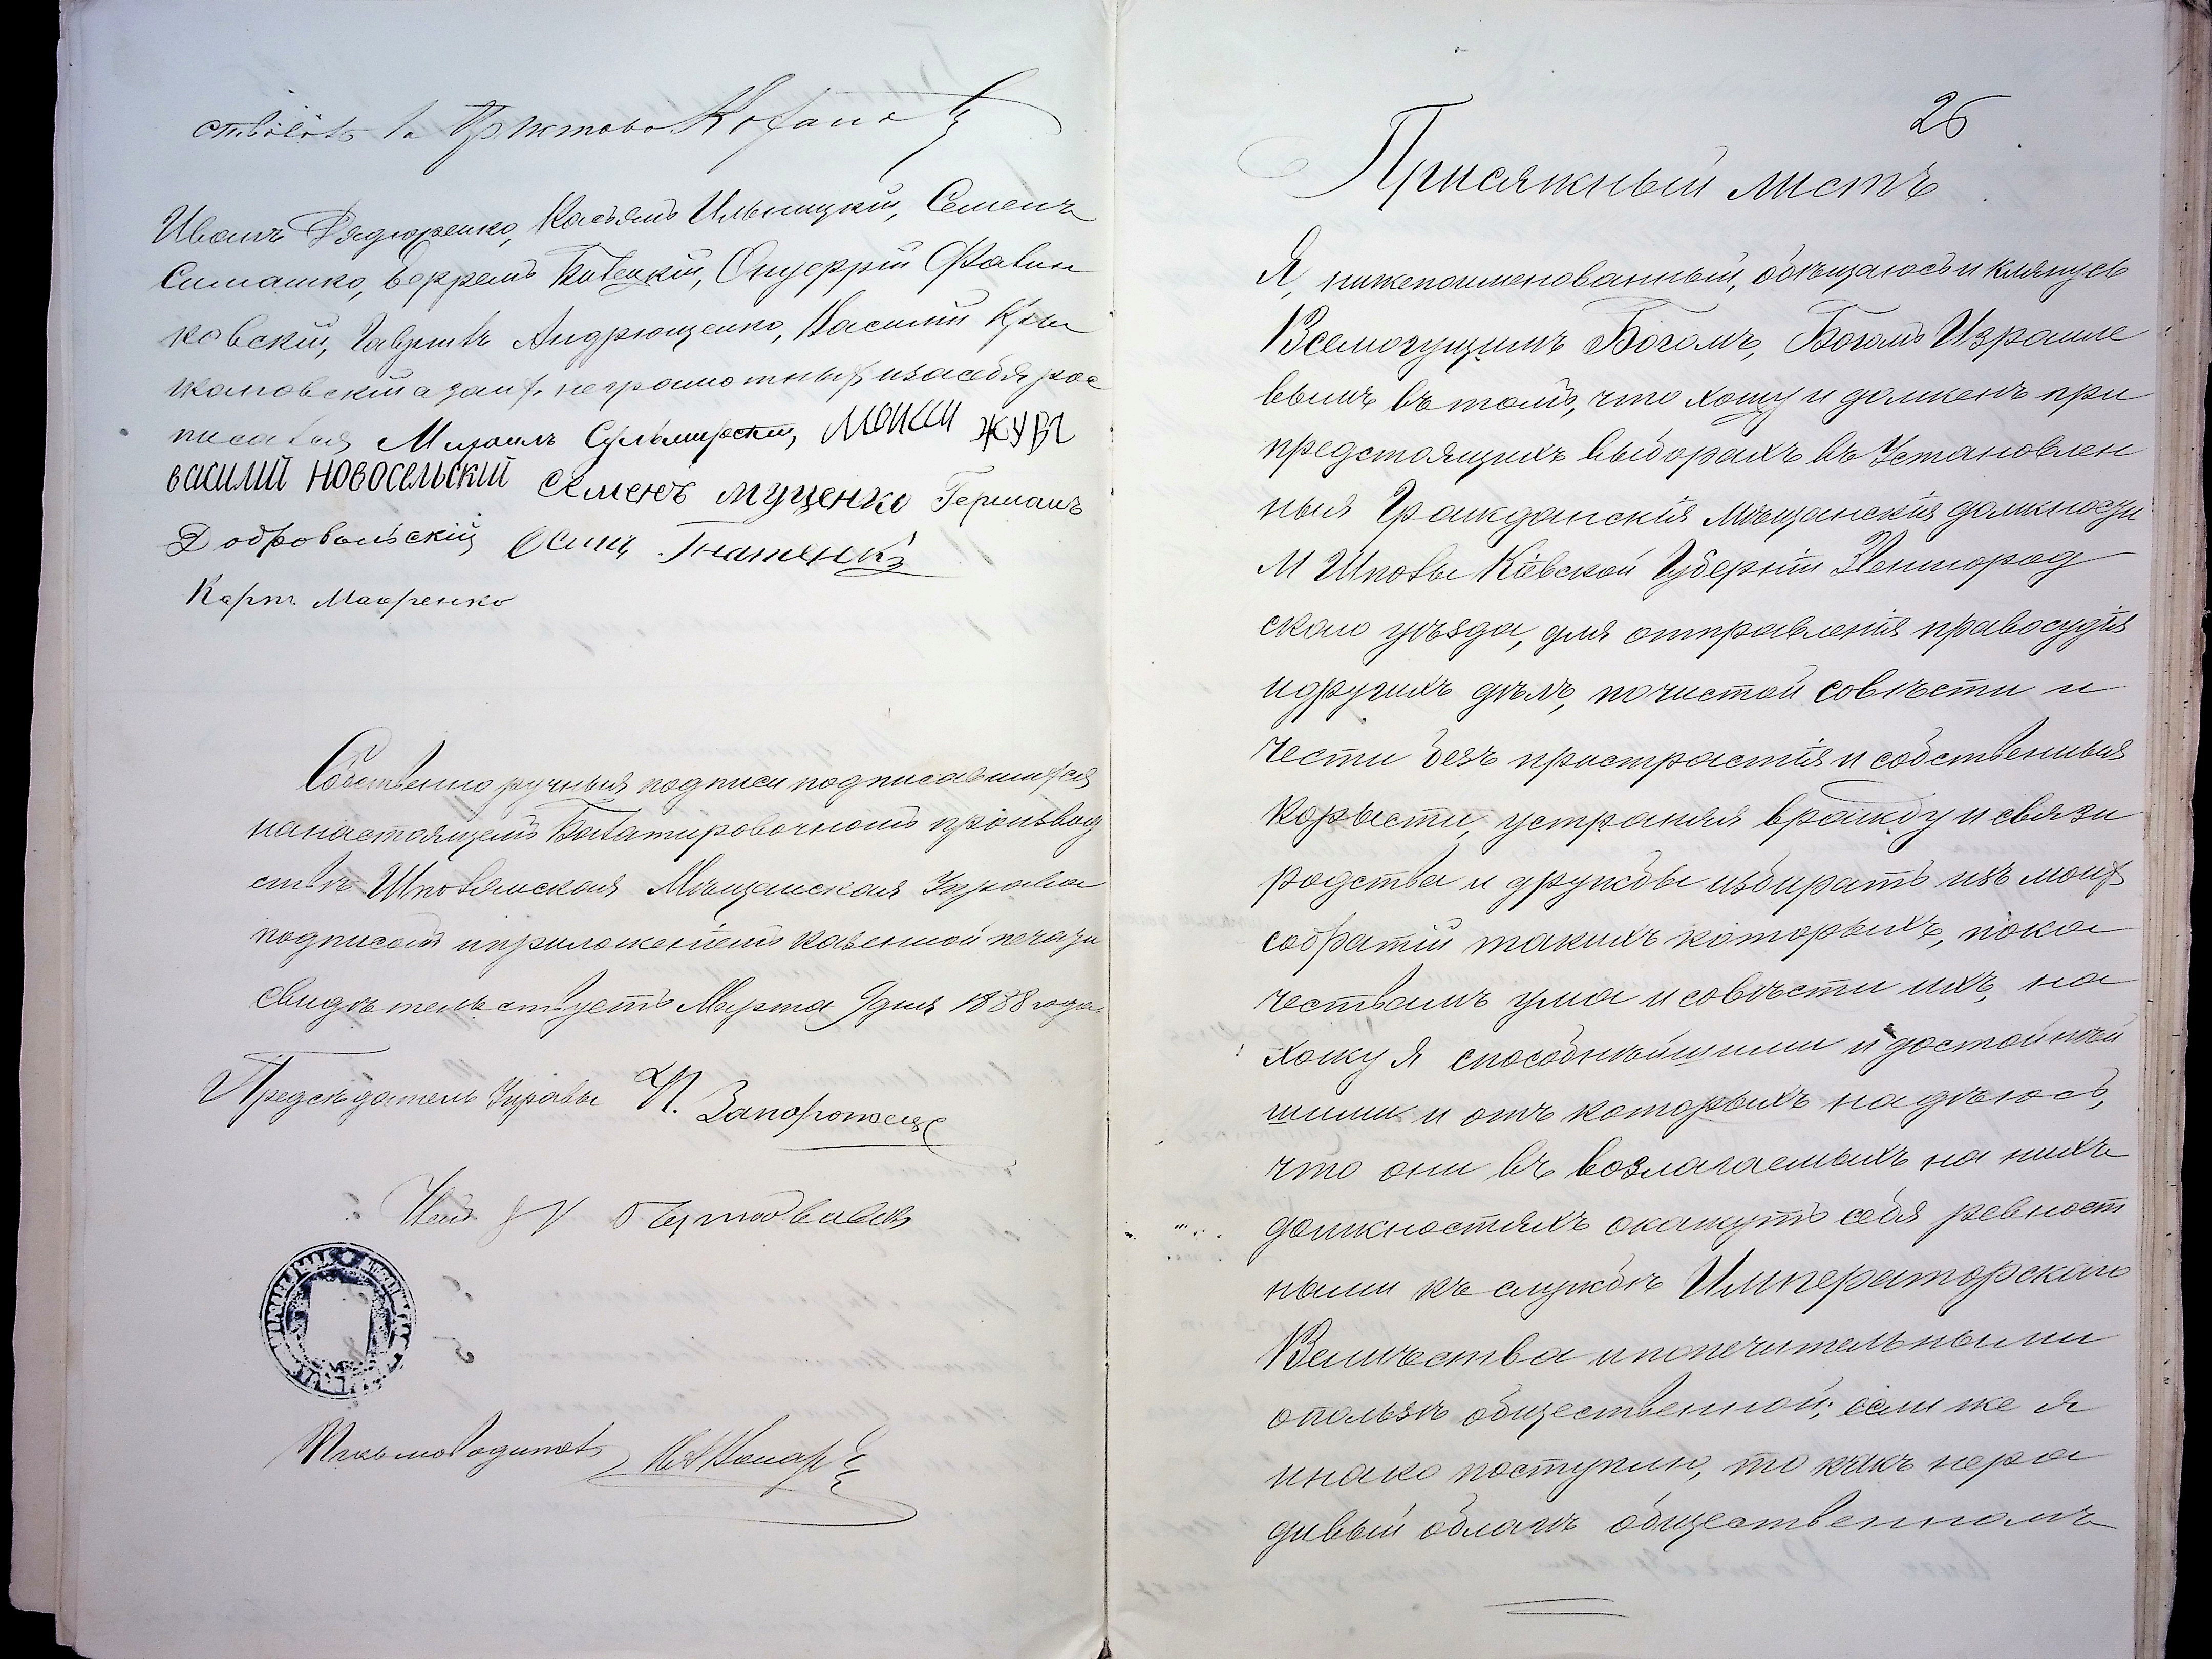 Иванъ Дядюренко, Касьянъ Ильницкій, Семенъ
Симашко,
ковскій, Гаврилъ Андрющенко, Василій
а за них неграмотных и за себя рос
писался Михаилъ Мойсей Журе
василий новосельский Семенъ Муценко Германъ
Добровольскій Осипъ Гнатенко
Карпъ Мавренко
Собственноручныя подписи подписавшихся
на настоящемъ Балатировочномъ производ
ствѣ Шполянская Мѣщанская Управа
подписомъ и приложеніемъ казенной печати
свидѣтельствуетъ Марта 9 дня 1888 года.
Предсѣдатель Управы Запорожецъ
Письмоводитель
26
Присяжный листъ
Я, нижепоименованный, обѣщаюсь и клянусь
Всемогущимъ Богомъ, Богомъ Израиле
вымъ въ томъ, что хощу и долженъ при
предстоящихъ выборахъ въ Установлен
ныя Гражданскія Мѣщанскія должности
М Шполы Кіевской Губерніи Звенигород
скаго уѣзда, для отправленія правосудія
и другихъ дѣлъ, по чистой совѣсти и
чести безъ пристрастія и собственныя
корысти, устраняя вражду и связи
родства и дружбы избирать изъ моих
собратій такихъ которыхъ, по ка
чествамъ ума и совѣсти ихъ, на
хожу я способнѣйшими и достойнѣй
шими и отъ которыхъ надѣюсь,
что они въ возлагаемыхъ на нихъ
должностяхъ окажутъ себя ревност
ными къ службѣ Императорскаго
Величества и попечительными
о пользѣ общественной; если же я
инако поступлю, то какъ нера
дивый о благѣ общественномъ